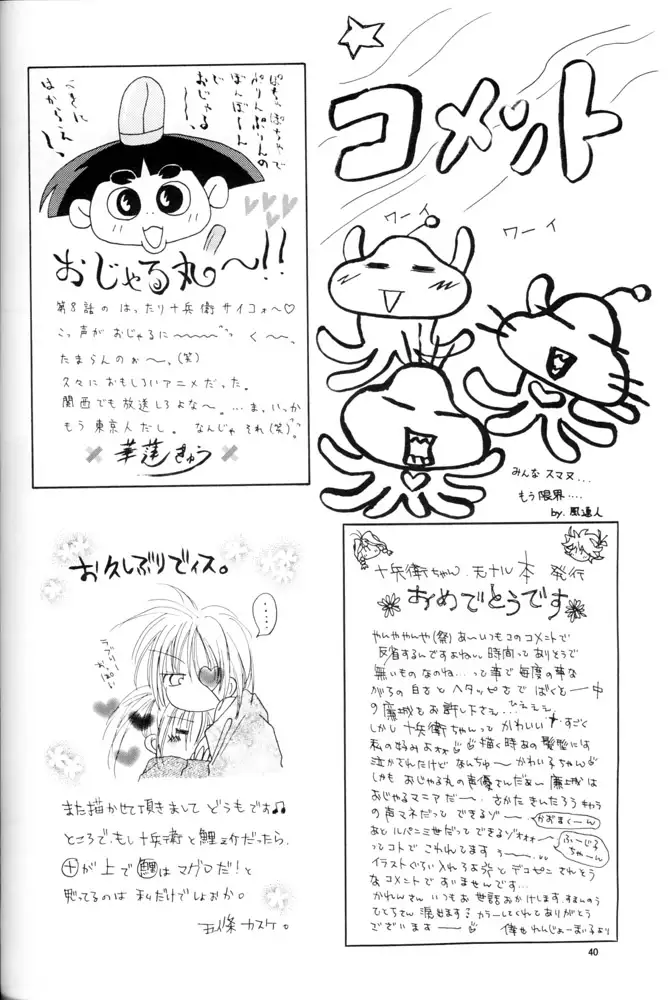 コメント
ワーイ
ワーイ
みんな スマヌ...
もう限界....
by. 風道人
ぱちんぽちゃで
ぷりんぷりんの
ぼんぼーん
おじゃる
おじゃる丸〜!!
第8話の はったり十兵衛 サイコォ〜♡
こっ声が おじゃるに〜〜〜 く〜〜、
たまらんのぉ〜〜。(笑)
久々に おもしろいアニメだった。
関西でも放送しろよな〜。...ま、いっか
もう 東京人だし。 なんじゃ それ(笑)。
華蓮 きゅう
お久しぶりでィス。
....
また描かせて頂きまして どうもです♫
ところで、もし十兵衛と鯉ノ介だったら、
㊉が上で 鯉はマグロだ!と
思ってるのは 私だけでしょおか。
五條 カスケ。
十兵衛ちゃん. モナル 本 発行
おめでとうです
やんややんや(祭) あ〜いつもコのコメントで
反省するんですよねい。時間ってありそうで
無いものなのね...って事で毎度の事な
がらの 白さと ヘタッピさで ばくと一中
の廉城をお許し下さえ...ひえええ
しかし 十兵衛ちゃんって かわいい すごく
私の好みよ 描く時あの髪型には
泣かされたけど なんちゅ〜 かわい子ちゃん
しかも おじゃる丸の声優さんだあい 廉城は
おじゃるマニアだー。 さかた きんたろう キャラ
の声マネだって できるゾー
かおまくーん
あと ルパン三世だって できるゾォォォ
ふーじこちゃーん
ってコトで こわれてます
イラストぐらい入れろよ と デコピン されそう
な コメント で すいませんです...
かれんさん いつも お世話おかけします。
カラーしてくれて ありがとう
ございます
40